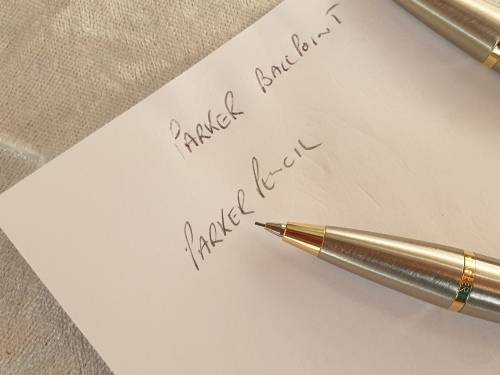 PARKER BALLPOINT
PARKER PENCIL